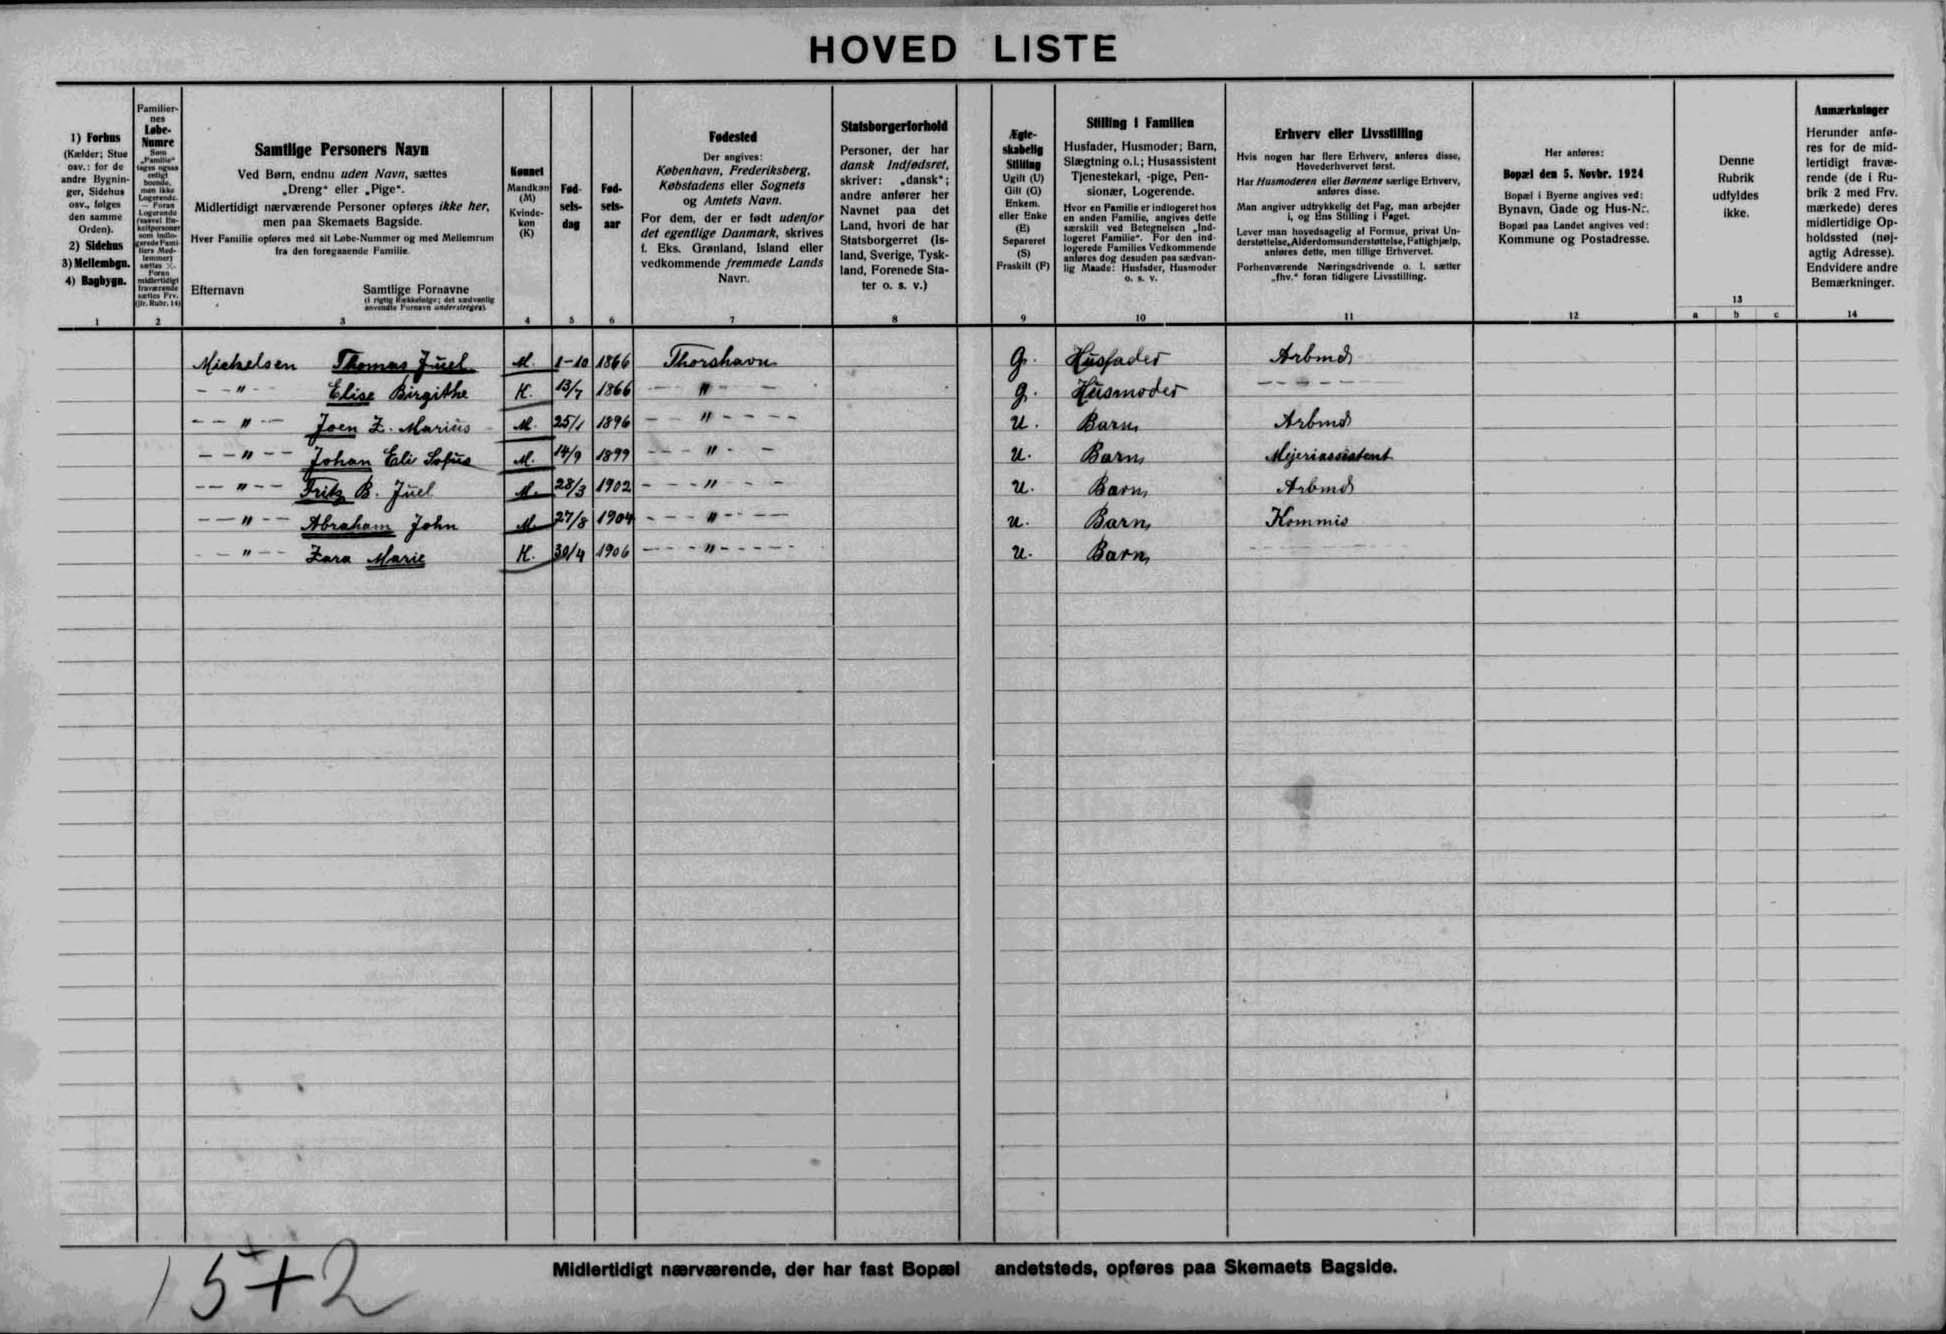 HOVED LISTE
1) Forhus
(Kælder; Stue
osv.: for de
andre Bygnin-
ger, Sidehus
osv., følges
den samme
Orden).
2) Sidehus
3) Mellembgn.
4) Bagbygn.
1
Familier-
nes
Løbe-
Numre
Som
„Familie"
tages ogsaa
enligt
boende,
men ikke
Logerende.
— Foran
Logerende
(saavel En-
keltpersoner
som indlo-
gerede Fami-
liers Med-
lemmer)
sættes ⁒.
Foran
midlertidigt
fraværende
sættes Frv.
(jfr. Rubr. 14)
2
Samtlige Personers Navn
Ved Børn, endnu uden Navn, sættes
„Dreng" eller „Pige".
Midlertidigt nærværende Personer opføres ikke her,
men paa Skemaets Bagside.
Hver Familie opføres med sit Løbe-Nummer og med Mellemrum
fra den foregaaende Familie.
Efternavn
Samtlige Fornavne
(i rigtig Rækkefølge; det sædvanlig
anvendte Fornavn understreges).
3
Kønnet
Mandkøn
(M)
Kvinde-
køn
(K)
4
Fød-
sels-
dag
5
Fød-
sels-
aar
6
Fødested
Der angives:
København, Frederiksberg,
Købstadens eller Sognets
og Amtets Navn.
For dem, der er født udenfor
det egentlige Danmark, skrives
f. Eks. Grønland, Island eller
vedkommende fremmede Lands
Navn.
7
Statsborgerforhold
Personer, der har
dansk Indfødsret,
skriver: „dansk";
andre anfører her
Navnet paa det
Land, hvori de har
Statsborgerret (Is-
land, Sverige, Tysk-
land, Forenede Sta-
ter o. s. v.)
8
Ægte-
skabelig
Stilling
Ugift (U)
Gift (G)
Enkem.
eller Enke
(E)
Separeret
(S)
Fraskilt (F)
9
Stilling i Familien
Husfader, Husmoder; Barn,
Slægtning o.l.; Husassistent
Tjenestekarl, -pige, Pen-
sionær, Logerende.
Hvor en Familie er indlogeret hos
en anden Familie, angives dette
særskilt ved Betegnelsen „Ind-
logeret Familie". For den ind-
logerede Families Vedkommende
anføres dog desuden paa sædvan-
lig Maade: Husfader, Husmoder
o. s. v.
10
Erhverv eller Livsstilling
Hvis nogen har flere Erhverv, anføres disse,
Hovederhvervet først.
Har Husmoderen eller Børnene særlige Erhverv,
anføres disse.
Man angiver udtrykkelig det Fag, man arbejder
i, og Ens Stilling i Faget.
Lever man hovedsagelig af Formue, privat Un-
derstøttelse, Alderdomsunderstøttelse, Fattighjælp,
anføres dette, men tillige Erhvervet.
Forhenværende Næringsdrivende o. l. sætter
„fhv." foran tidligere Livsstilling.
11
Her anføres:
Bopæl den 5. Novbr. 1924
Bopæl i Byerne angives ved:
Bynavn, Gade og Hus-Nr.
Bopæl paa Landet angives ved:
Kommune og Postadresse.
12
Denne
Rubrik
udfyldes
ikke.
13
a b c
Anmærkninger
Herunder anfø-
res for de mid-
lertidigt fravæ-
rende (de i Ru-
brik 2 med Frv.
mærkede) deres
midlertidige Op-
holdssted (nøj-
agtig Adresse).
Endvidere andre
Bemærkninger.
14
Mickelsen Thomas Juel M. 1-10 1866 Thorshavn g. Husfader Arbmd
– – " – Elise Birgithe K. 13/7 1866 – – " – – g. Husmoder – – – – –
– – " – – Joen Z. Marius M. 25/1 1896 – – " – – – – U. Barn Arbmd
– – " – – Johan Eli Sofus M. 14/9 1899 – – " – – U. Barn Mejeriassistent
– – " – – Fritz B. Juel M. 28/3 1902 – – – " – – – U. Barn Arbmd
– – " – – Abraham John M. 27/8 1904 – – – " – – – U. Barn Kommis
– – " – – Zara Marie K. 30/4 1906 – – – – " – – – – – U. Barn – – – – –
15+2
Midlertidigt nærværende, der har fast Bopæl andetsteds, opføres paa Skemaets Bagside.